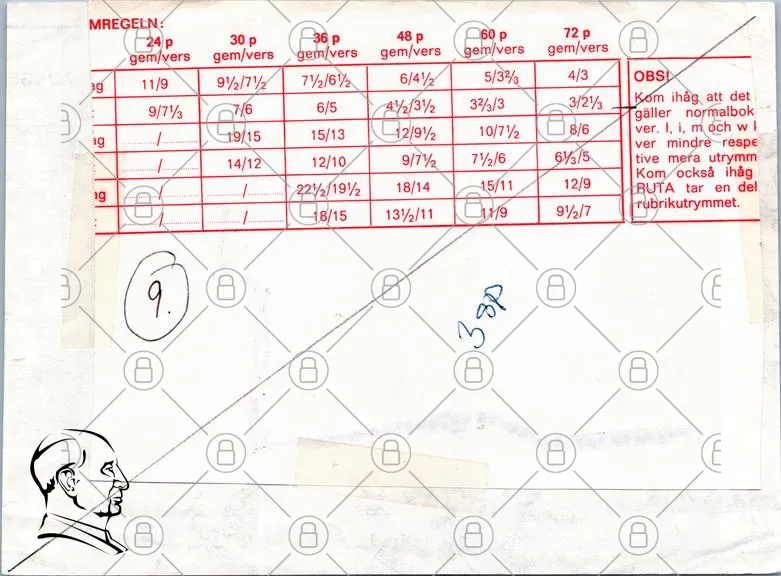 MREGELN:
24 p 30 p 36 p 48 p 60 p 72 p
gem/vers gem/vers gem/vers gem/vers gem/vers gem/vers
ag 11/9 9½/7½ 7½/6½ 6/4½ 5/3⅔ 4/3
: 9/7⅓ 7/6 6/5 4½/3½ 3⅔/3 3/2⅓
ag / 19/15 15/13 12/9½ 10/7½ 8/6
: / 14/12 12/10 9/7½ 7½/6 6⅓/5
ag / / 22½/19½ 18/14 15/11 12/9
: / / 18/15 13½/11 11/9 9½/7
OBS!
Kom ihåg att det
gäller normalbok
ver. I, i, m och w
ver mindre respe
tive mera utrymm
Kom också ihåg
RUTA tar en del
rubrikutrymmet.
9.
3sp